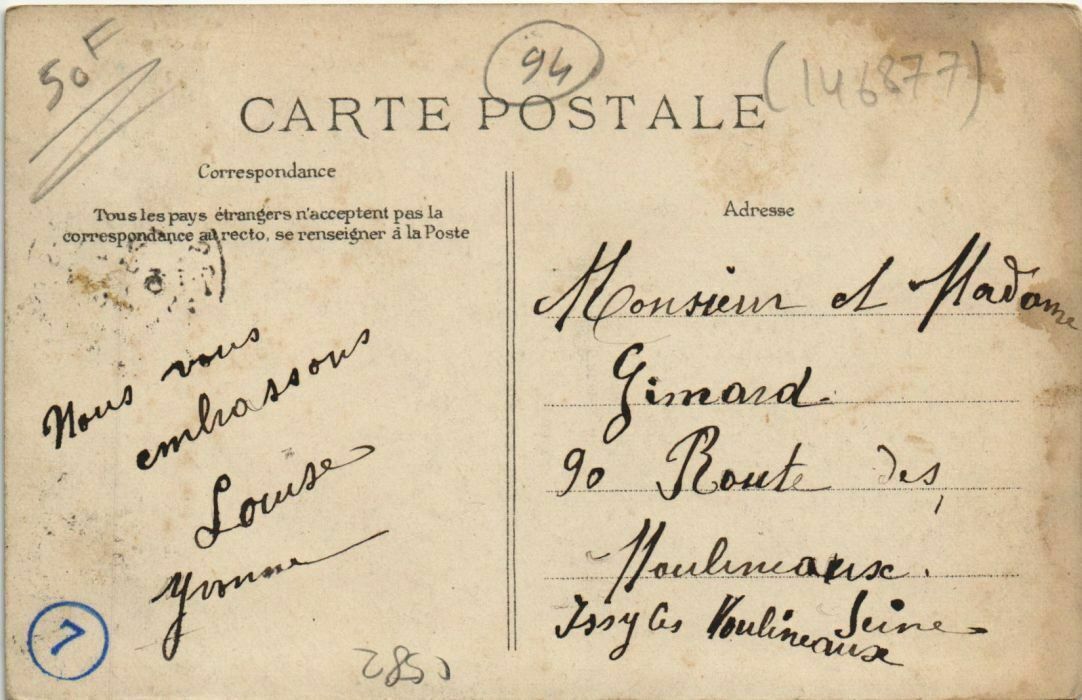 50F
94
(146877)
CARTE POSTALE
Correspondance
Tous les pays étrangers n'acceptent pas la
correspondance au recto, se renseigner à la Poste
Nous vous
embrassons
Louise
Yvonne
7
2850
Adresse
Monsieur et Madame
Gimard.
90 Route des
Moulineaux.
Issy les Moulineaux
Seine